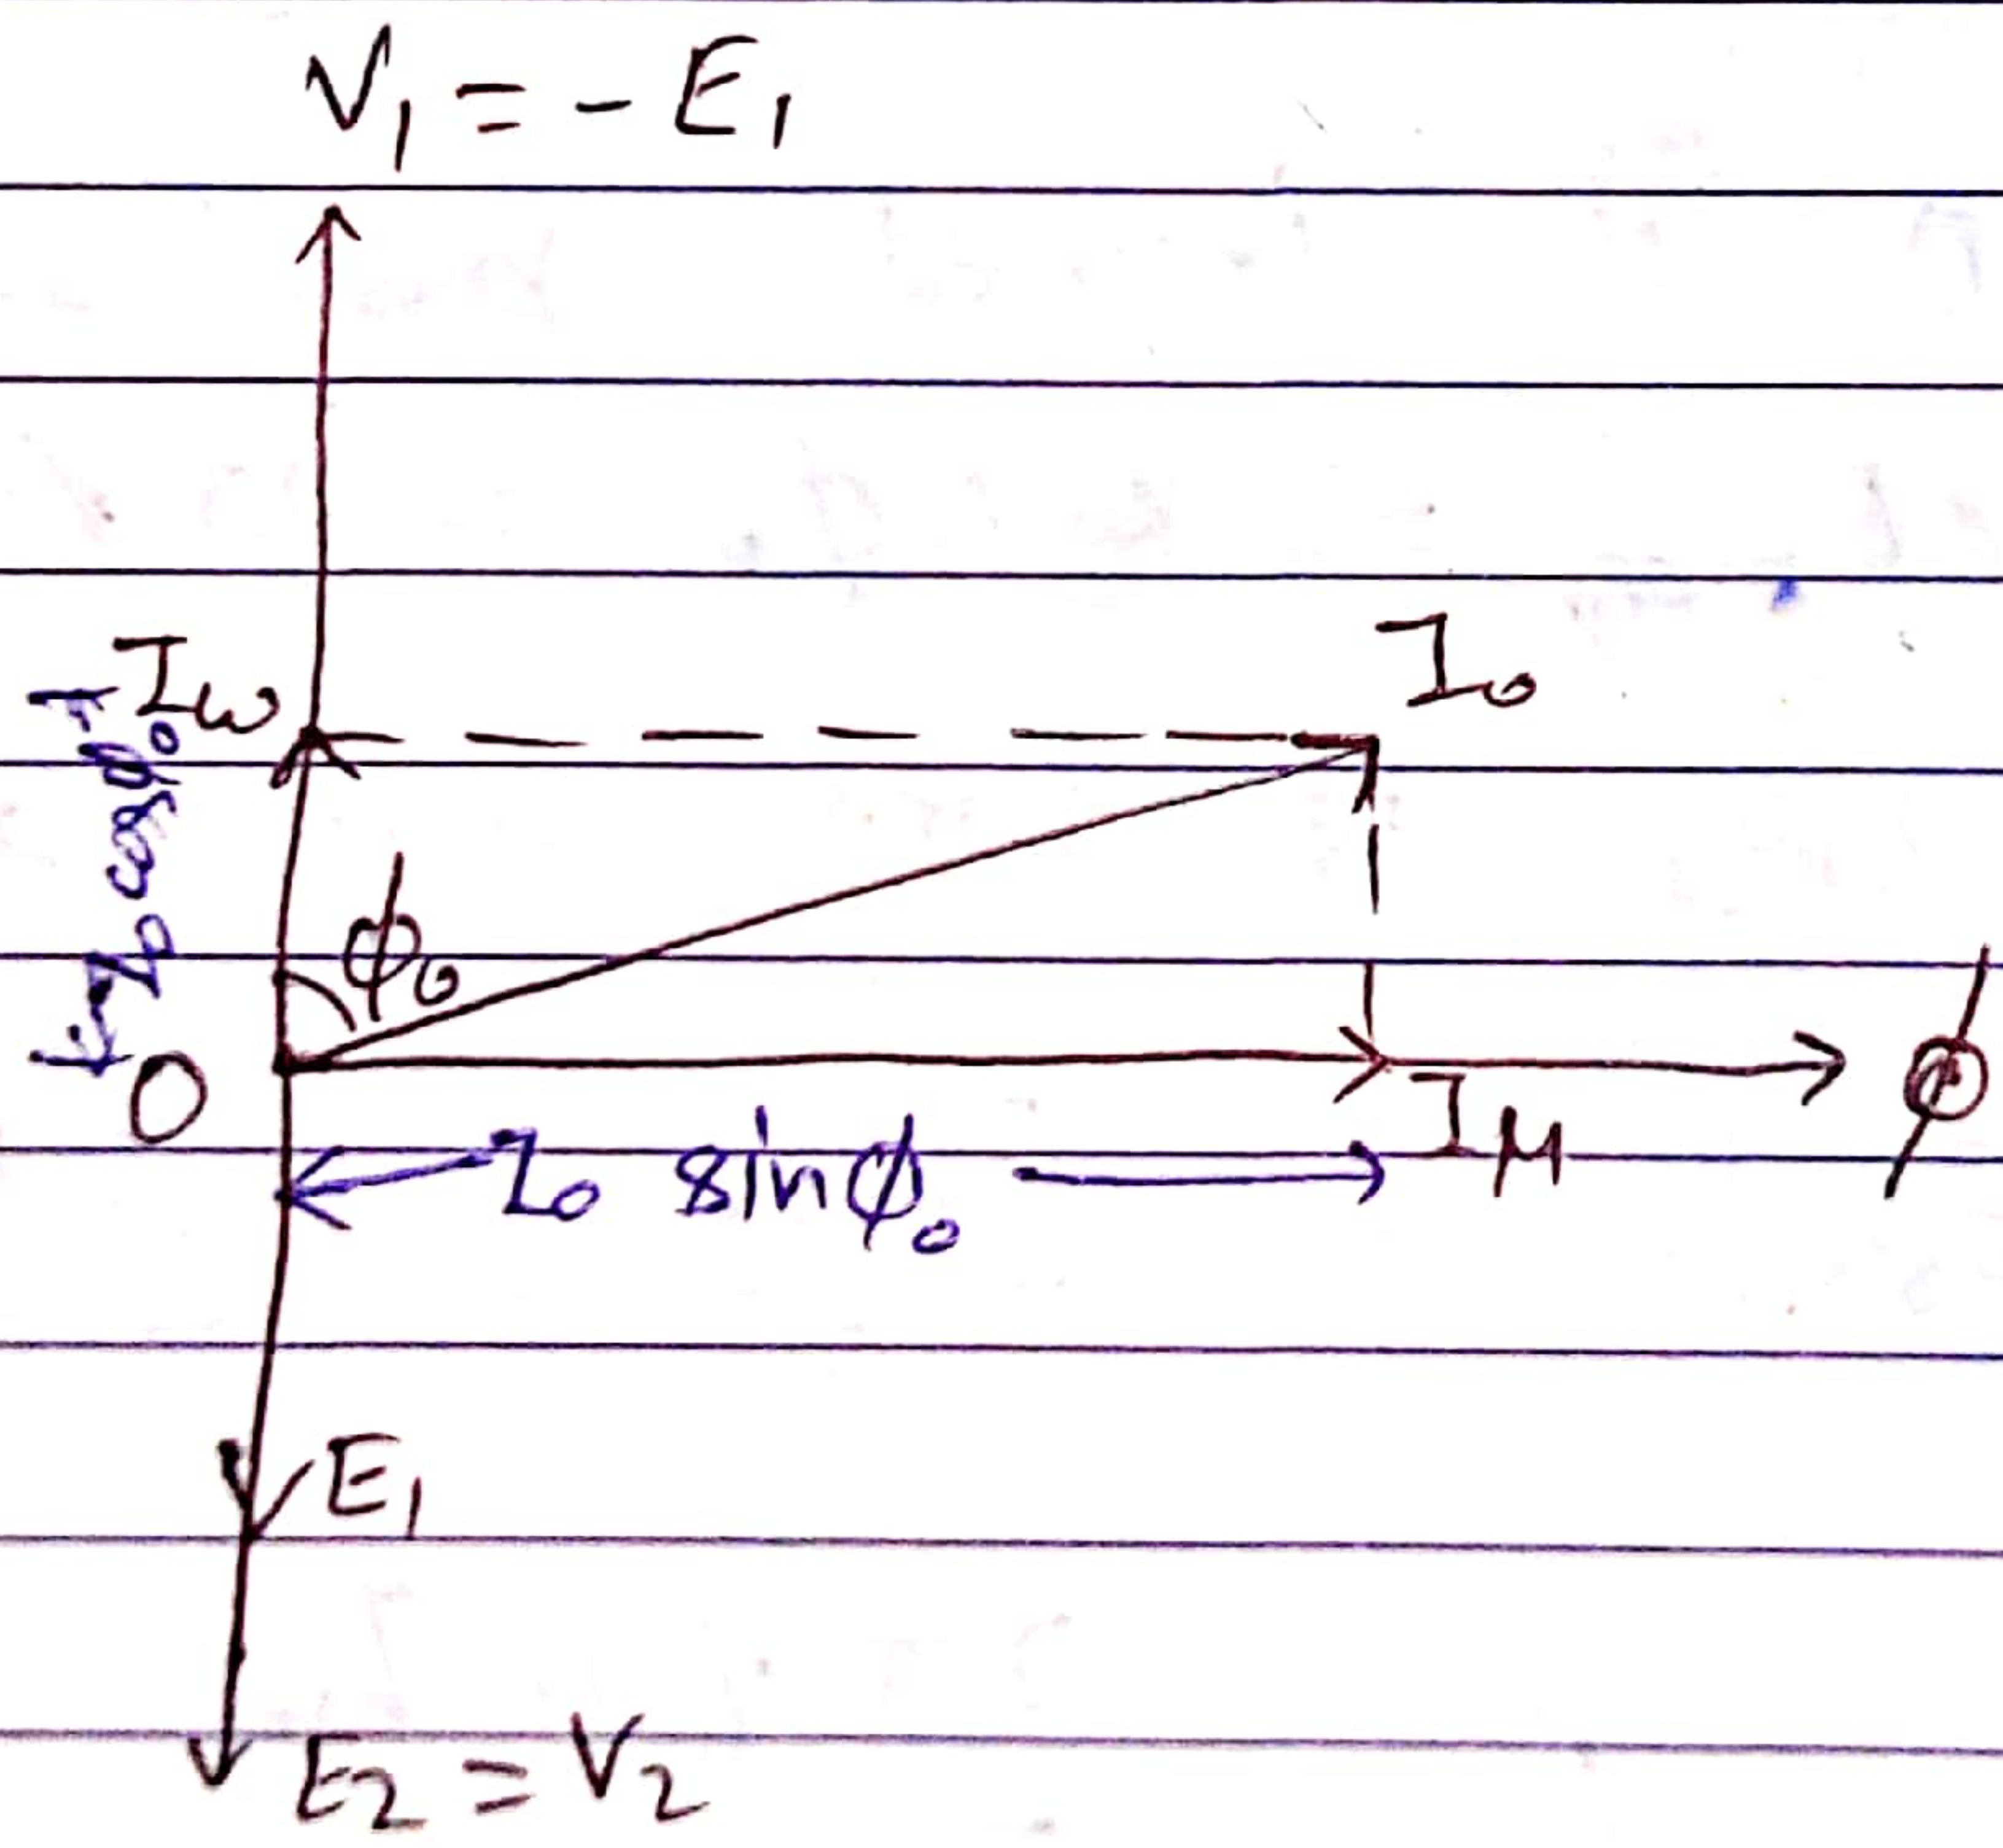 V₁ = - E₁
I₀
Iω
I₀ cosϕ₀
ϕ₀
O
Iμ
ϕ
I₀ sinϕ₀
E₁
E₂ = V₂